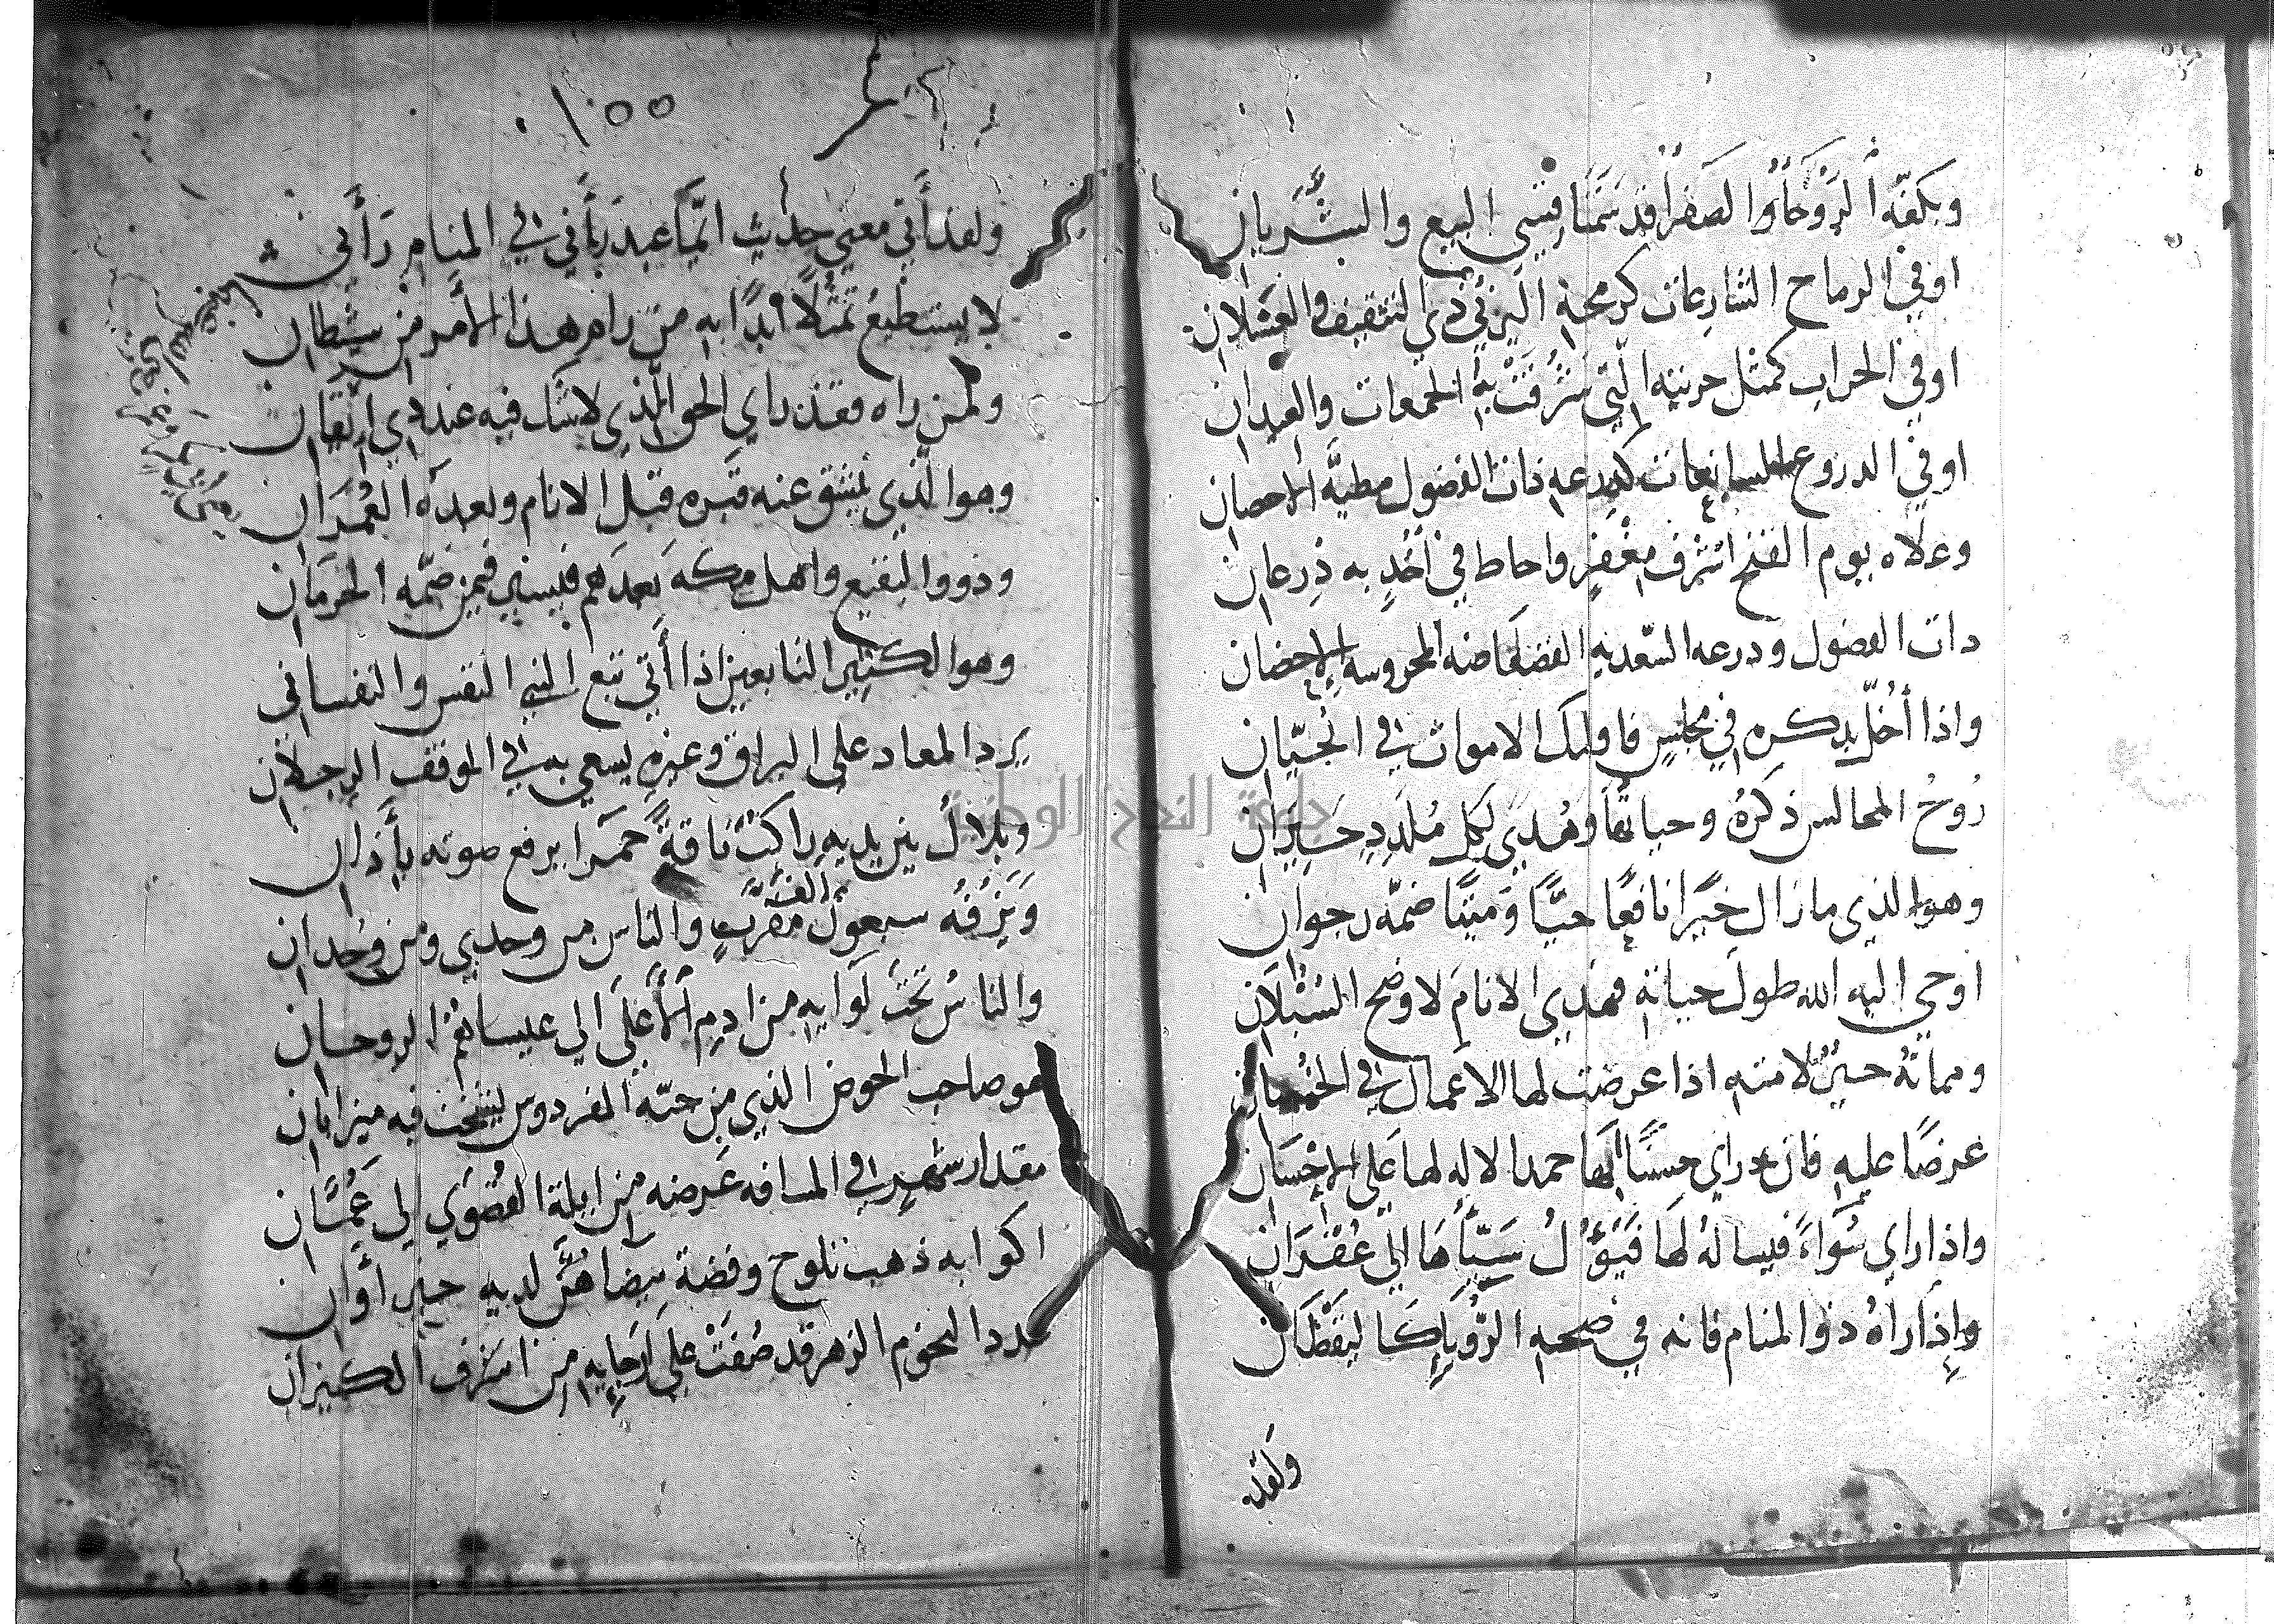 وبكفّه الروحا والصفرا قد سمتا قسي البيع والشّريان
او في الرماح الشارعات كرمحه اليزني ذي التثقيف والعسلان
او في الحراب كمثل حربته التي شرفت به الجمعات والعيدان
او في الدروع السابغات كدرعه ذات الفضول مطيّة الاحصان
وعلاه يوم الفتح اشرف مغفر واحاط في أحد به درعان
ذات الفضول ودرعه السّعديه الفضفاضه المحروسه الاحضان
واذا أخلّ بذكره في مجلس فاولئك الاموات في الجبّان
رُوحُ المجالس ذكرهُ وحياتها وهُدى لكل مُلدّدٍ حيران
وهو الذي ما زال خيرا نافعًا حيًّا وميتا ضمّه رجوان
اوحي اليه الله طول حياته فهدى الانام لاوضح السُبلان
ومماته خيرٌ لامته اذا عرضت لها الاعمال في
عرضًا عليه فان راي حسنًا لها حمدا لاله لها على الاحسان
واذا راي سُواءً فيسالهُ لها فيَؤُلُ سيّأها الي غفران
وإذا راهُ ذوا المنام فانه في صحه الرؤيا كا ليقظان
ولقد
١٥٥
ولقد أتي معني حديث عبد رأني في المنام رَأَني
لا يستطيع تمثلًا أبدًا به من رام هذا الأمر من شيطان
ولمن راه فقد راي الحق الّذي لا شك فيه عند ذي ايقان
وهو الّذي ينشق عنه قبره قبل الانام وبعده العُمران
وذووا البقيع واهل مكه بعدهم فيمن ضمّه الحرمان
وهوا لكثير التابعين اذا أتي تبع النبي النفس والنفسان
يرد المعاد على البراق وغيره يسعي به في الموقف الرجلان
وبلالُ بين يديه راكبُ ناقةٍ حمرا يرفع صوته بأذان
وَيَزفُه سبعون ألف مقربٍ والناس من وحدي ومن وحدان
والناسُ تحتَ لوايه من ادم الأعلَى الي عيساهم الروحان
هو صاحب الحوض الذي من جنّه الفردوس يشخب فيه ميزابان
مقدار شهر في المسافه عَرضه من ايلة القُصْوَي الي عَمَّان
اكوابه ذهب تلوح وفضة بيضا هنّ لديه خير أَوان
عدد النجوم الزهر قد صُفتْ على اَرجايه من اشرف الكيزان
جامعة النجاح الوطنية